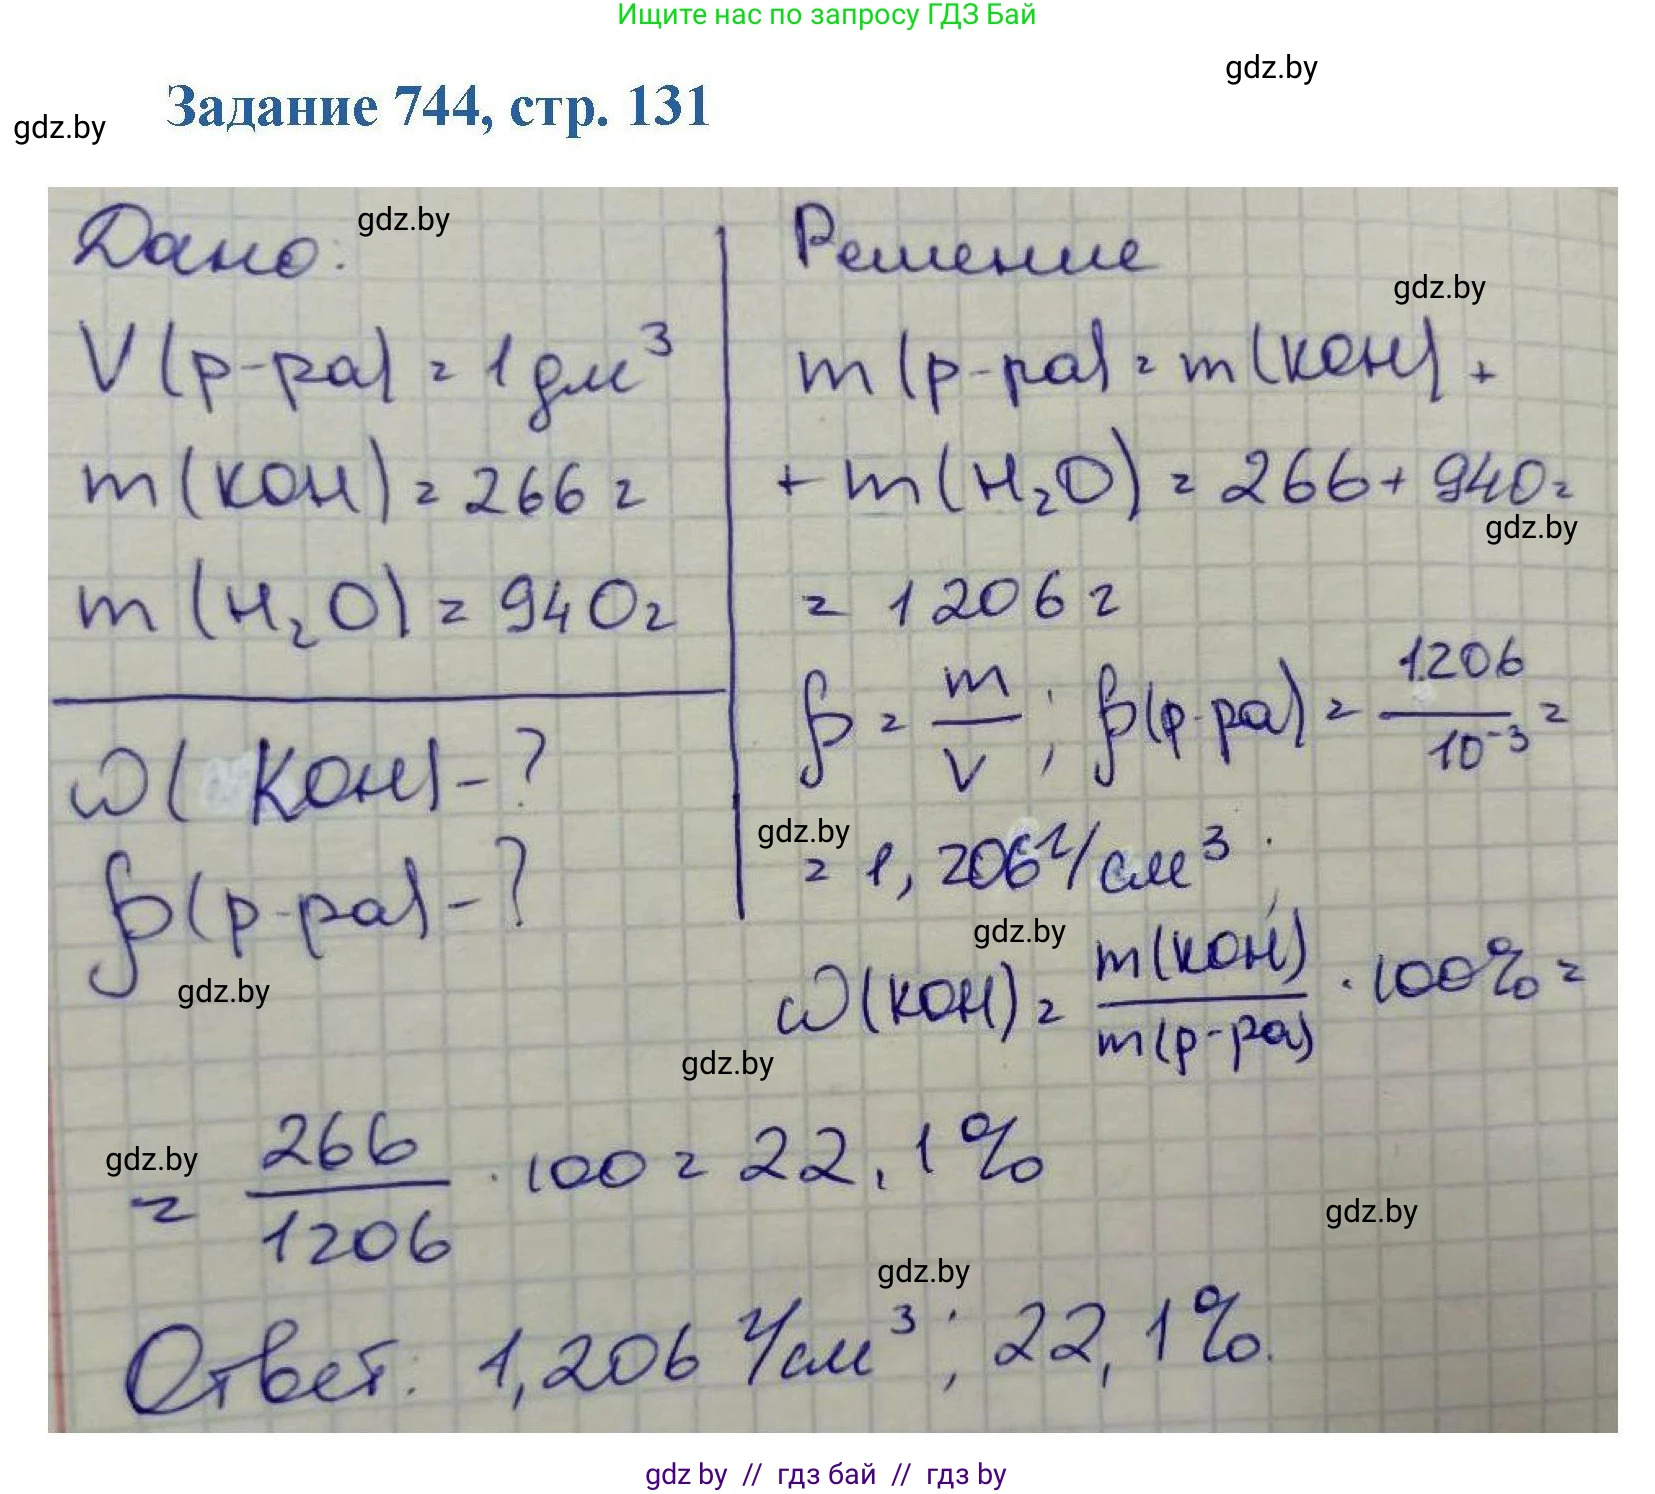 Ищите нас по запросу ГДЗ Бай
gdz.by
Задание 744, стр. 131
gdz.by
Дано:
gdz.by
V(р-ра) = 1 дм³
m(KOH) = 266 г
m(H₂O) = 940 г
ω(KOH) - ?
ρ(р-ра) - ?
gdz.by
Решение
gdz.by
m(р-ра) = m(KOH) +
+ m(H₂O) = 266 + 940 =
gdz.by
= 1206 г
ρ = m/V ; ρ(р-ра) = 1206/10⁻³ =
gdz.by
= 1,206 г/см³ ;
gdz.by
ω(KOH) = m(KOH)/m(р-ра) · 100% =
gdz.by
gdz.by
= 266/1206 · 100 = 22,1%
gdz.by
gdz.by
Ответ: 1,206 г/см³ ; 22,1%.
gdz by // гдз бай // гдз by